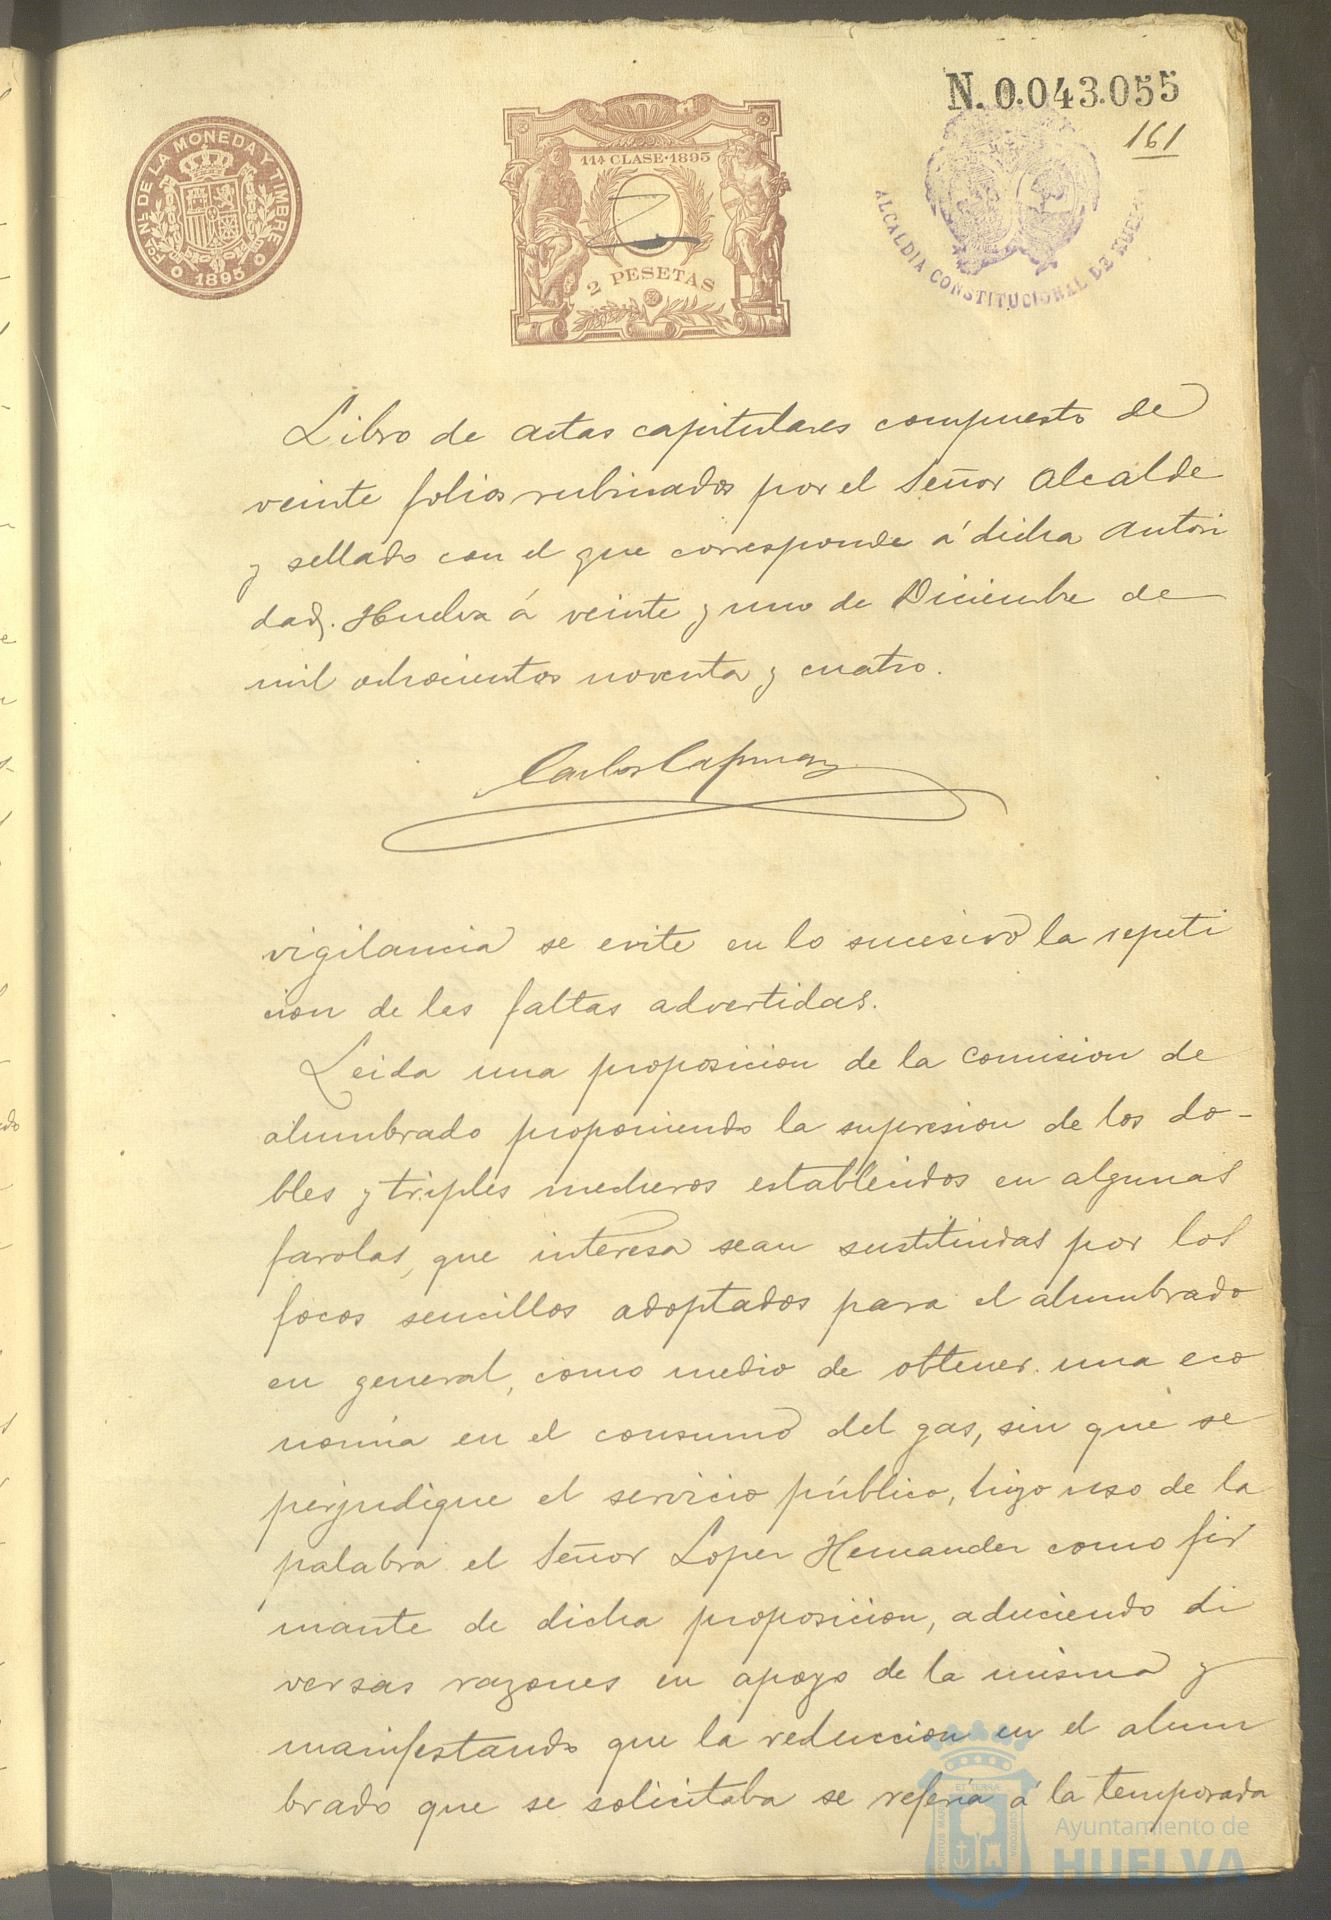 N. 0.043.055
161
FCA. NL. DE LA MONEDA Y TIMBRE
1895
11ª CLASE·1895
2 PESETAS
ALCALDIA CONSTITUCIONAL DE HUELVA
Libro de actas capitulares compuesto de
veinte folios rubricados por el Señor Alcalde
y sellado con el que corresponde á dicha Autori
dad. Huelva á veinte y uno de Diciembre de
mil ochocientos noventa y cuatro.
Carlos
vigilancia se evite en lo sucesivo la repeti
cion de las faltas advertidas.
Leida una proposicion de la comision de
alumbrado proponiendo la supresion de los do-
bles y triples mecheros establecidos en algunas
farolas, que interesa sean sustituidas por los
focos sencillos adoptados para el alumbrado
en general, como medio de obtener una eco
nomia en el consumo del gas, sin que se
perjudique el servicio público, hizo uso de la
palabra el Señor Lopez Hernandez como fir
mante de dicha proposicion, aduciendo di
versas razones en apoyo de la misma y
manifestando que la reduccion en el alum
brado que se solicitaba se referia á la temporada
ET TERRÆ
PORTUS MARIS
CUSTODIA
Ayuntamiento de
HUELVA